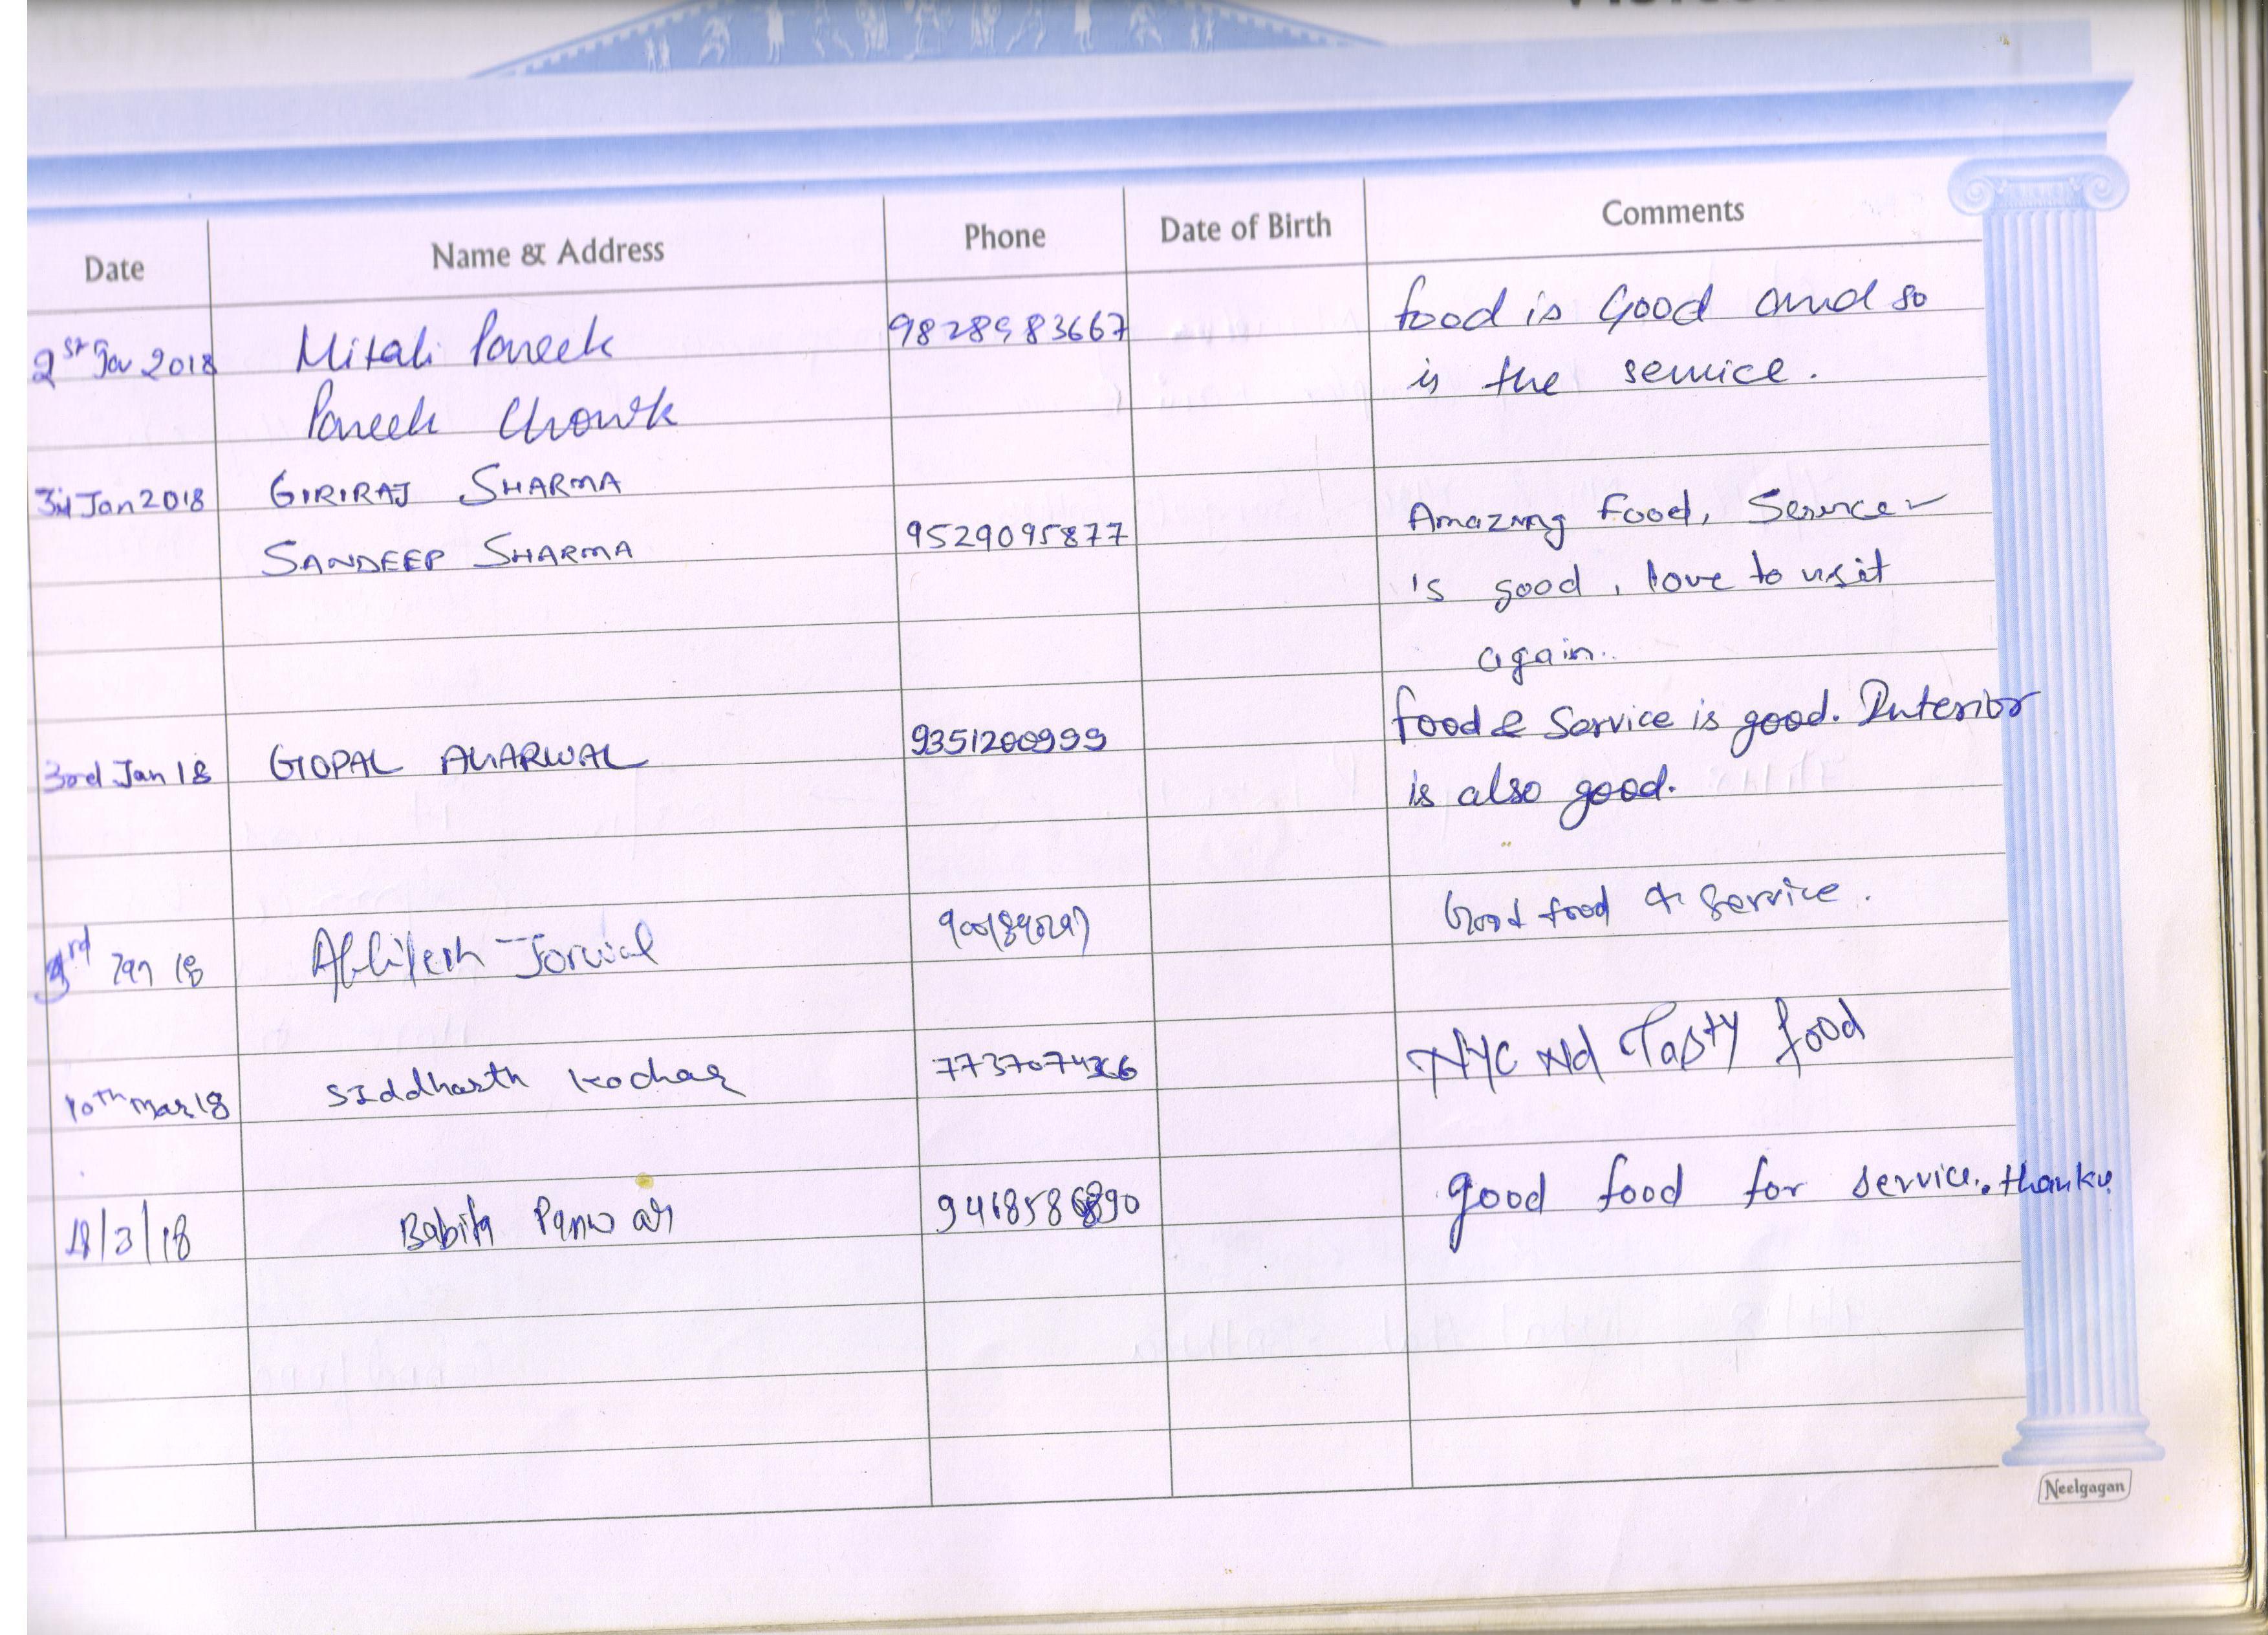 Date Name & Address Phone Date of Birth Comments
2st Jan 2018 Mitali Pareek 9828983667 food is Good and so
is the service.
Pareek Chowk
3rd Jan 2018 GIRIRAJ SHARMA
SANDEEP SHARMA 9529095877 Amazing Food, Service
is good, love to visit
again..
3rd Jan 18 GOPAL AGARWAL 9351200999 food & Service is good. Interior
is also good.
3rd Jan 18 Good food & Service.
10th Mar 18 SIddharth Kochar NYC Nd Tasty food
/3/18 Babita Panwar good food for service. thanku
Neelgagan